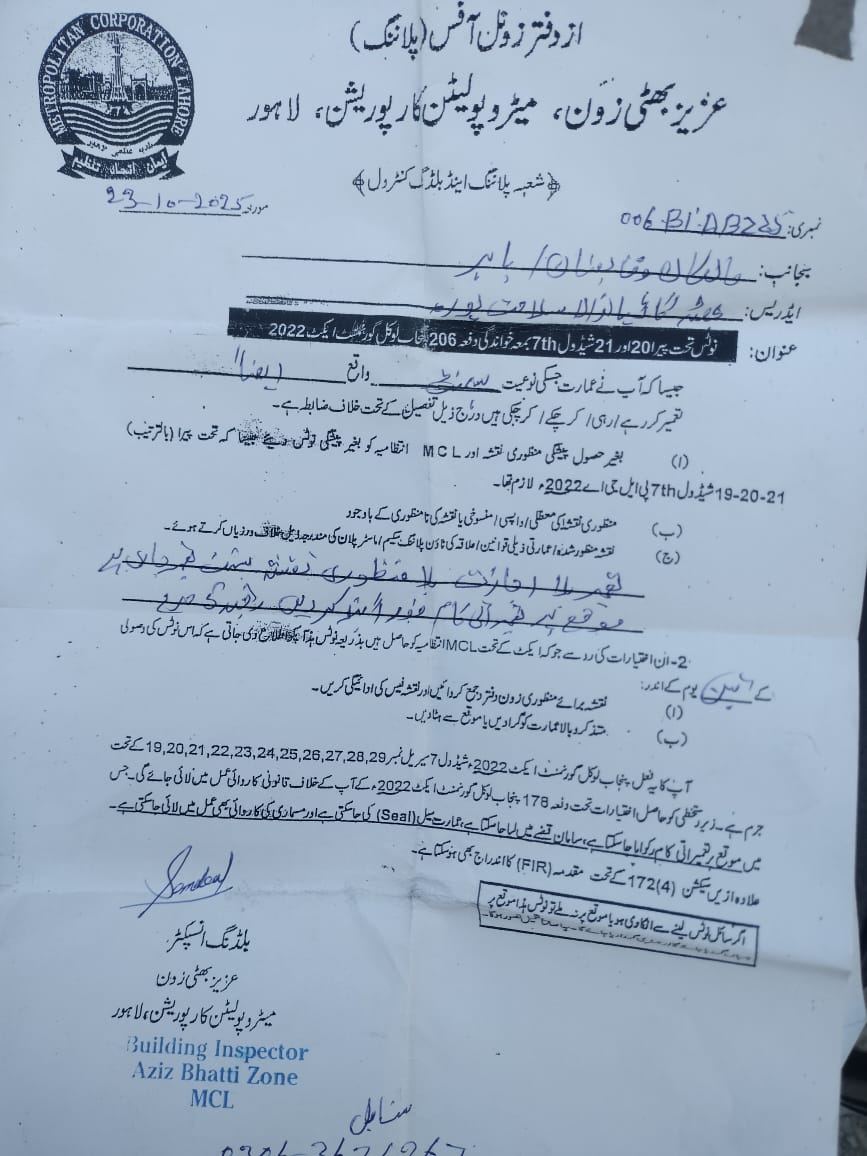 METROPOLITAN CORPORATION LAHORE
ایمان اتحاد تنظیم
از دفتر زونل آفس (پلاننگ)
عزیز بھٹی زون، میٹروپولیٹن کارپوریشن، لاہور
﴿شعبہ پلاننگ اینڈ بلڈنگ کنٹرول﴾
نمبری: 006
مورخہ 23-10-2025
بجانب:
ایڈریس:
عنوان: نوٹس تحت پیرا 20 اور 21 شیڈول 7th بمعہ خواندگی دفعہ 206 پنجاب لوکل گورنمنٹ ایکٹ 2022
جیسا کہ آپ نے عمارت جسکی نوعیت واقع ایضاً
تعمیر کر رہے / رہی / کر چکے / کر چکی ہیں درج ذیل تفصیل کے تحت خلاف ضابطہ ہے۔
(ا) بغیر حصول پیشگی منظوری نقشہ اور MCL انتظامیہ کو بغیر پیشگی نوٹس کہ تحت پیرا (بالترتیب)
19-20-21 شیڈول 7th پی ایل جی اے 2022ء لازم تھا۔
(ب) منظوری نقشہ کی معطلی / واپسی / منسوخی یا نقشہ کی نامنظوری کے باوجود
(ج) نقشہ منظور شدہ / عمارتی ذیلی قوانین / علاقہ کی ٹاؤن پلاننگ سکیم / ماسٹر پلان کی مندرجہ ذیل خلاف ورزیاں کرتے ہوئے۔
تعمیر بلا اجازت بلا منظوری نقشہ
موقع پر تعمیراتی کام فوراً
2- ان اختیارات کی رو سے جو کہ ایکٹ کے تحت MCL انتظامیہ کو حاصل ہیں بذریعہ نوٹس ہذا آپکو اطلاع دی جاتی ہے کہ اس نوٹس کی وصولی
کے تین یوم کے اندر:
(ا) نقشہ برائے منظوری زون دفتر جمع کروائیں اور نقشہ فیس کی ادائیگی کریں۔
(ب) متذکرہ بالا عمارت کو گرا دیں یا موقع سے ہٹا دیں۔
آپ کا یہ فعل پنجاب لوکل گورنمنٹ ایکٹ 2022ء شیڈول 7 سیریل نمبر 19,20,21,22,23,24,25,26,27,28,29 کے تحت
جرم ہے۔ زیر دستخطی کو حاصل اختیارات تحت دفعہ 178 پنجاب لوکل گورنمنٹ ایکٹ 2022ء کے آپ کے خلاف قانونی کاروائی عمل میں لائی جائے گی۔ جس
میں موقع پر تعمیراتی کام کو روکا جا سکتا ہے، سامان قبضے میں لیا جا سکتا ہے، عمارت سیل (Seal) کی جا سکتی ہے اور مسماری کی کاروائی بھی عمل میں لائی جا سکتی ہے۔
علاوہ ازیں سیکشن 172(4) کے تحت مقدمہ (FIR) کا اندراج بھی ہو سکتا ہے۔
اگر سائل نوٹس لینے سے انکاری ہو یا موقع پر نہ ملے تو نوٹس ہذا موقع پر
بلڈنگ انسپکٹر
عزیز بھٹی زون
میٹروپولیٹن کارپوریشن، لاہور
Building Inspector
Aziz Bhatti Zone
MCL